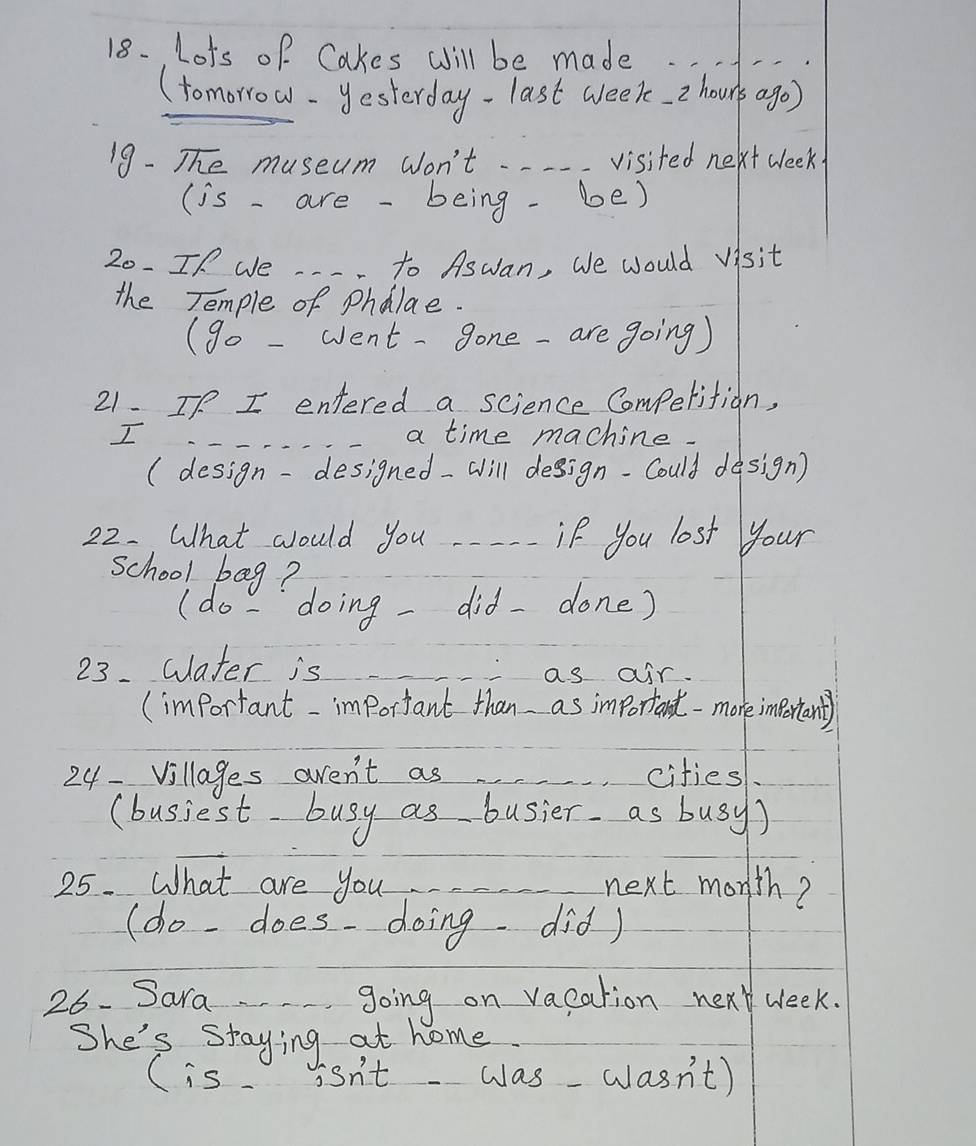 18- Lots of Cakes will be made .......
(tomorrow - yesterday - last week - 2 hours ago)
19- The museum won't ----- visited next week.
(is - are - being - be)
20- If we ---- to Aswan, we would visit
the Temple of Philae.
(go - went - gone - are going)
21- If I entered a science Competition,
I --------- a time machine.
(design - designed - will design - Could design)
22- What would you ----- if you lost your
school bag?
(do - doing - did - done)
23- Water is ------- as air.
(important - important than - as important - more important)
24- Villages aren't as ------- cities.
(busiest - busy as - busier - as busy)
25- What are you --------- next month?
(do - does - doing - did)
26- Sara ----- going on vacation next week.
She's Staying at home.
(is - isn't - was - wasn't)